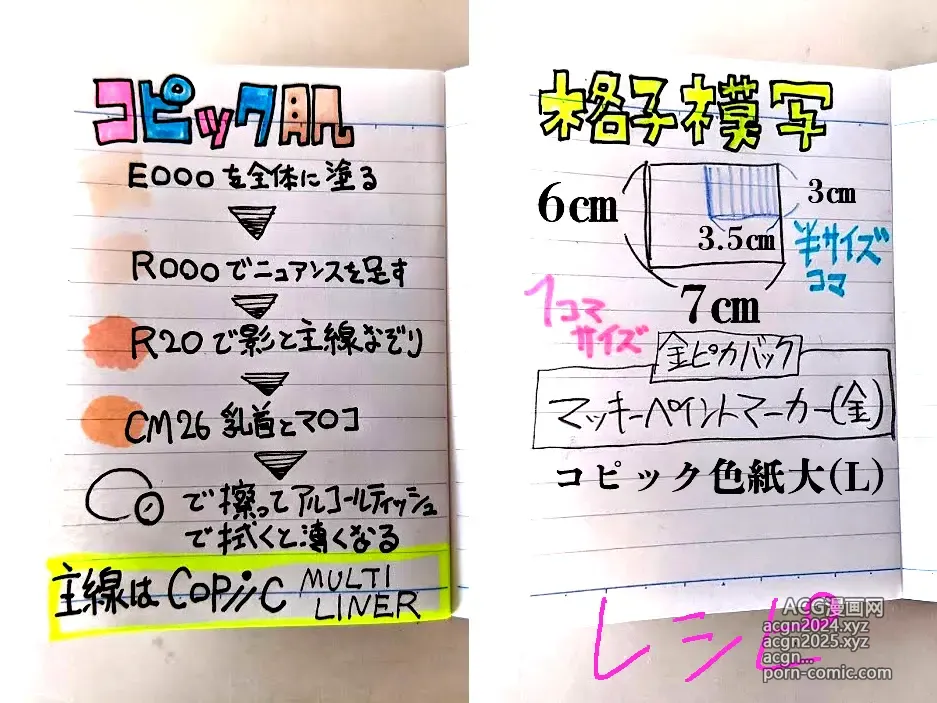 コピック肌
E000を全体に塗る
R000でニュアンスを足す
R20で影と主線なぞり
CM26 乳首とマロコ
で擦ってアルコールティッシュ
で拭くと薄くなる
主線は COPiC MULTI LINER
格子模写
6cm
3cm
3.5cm
半サイズ
コマ
7cm
1コマ
サイズ
金ピカバック
マッキーペイントマーカー(金)
コピック色紙大(L)
レシピ
ACG漫画网
acgn2024.xyz
acgn2025.xyz
acgn...
porn-comic.com